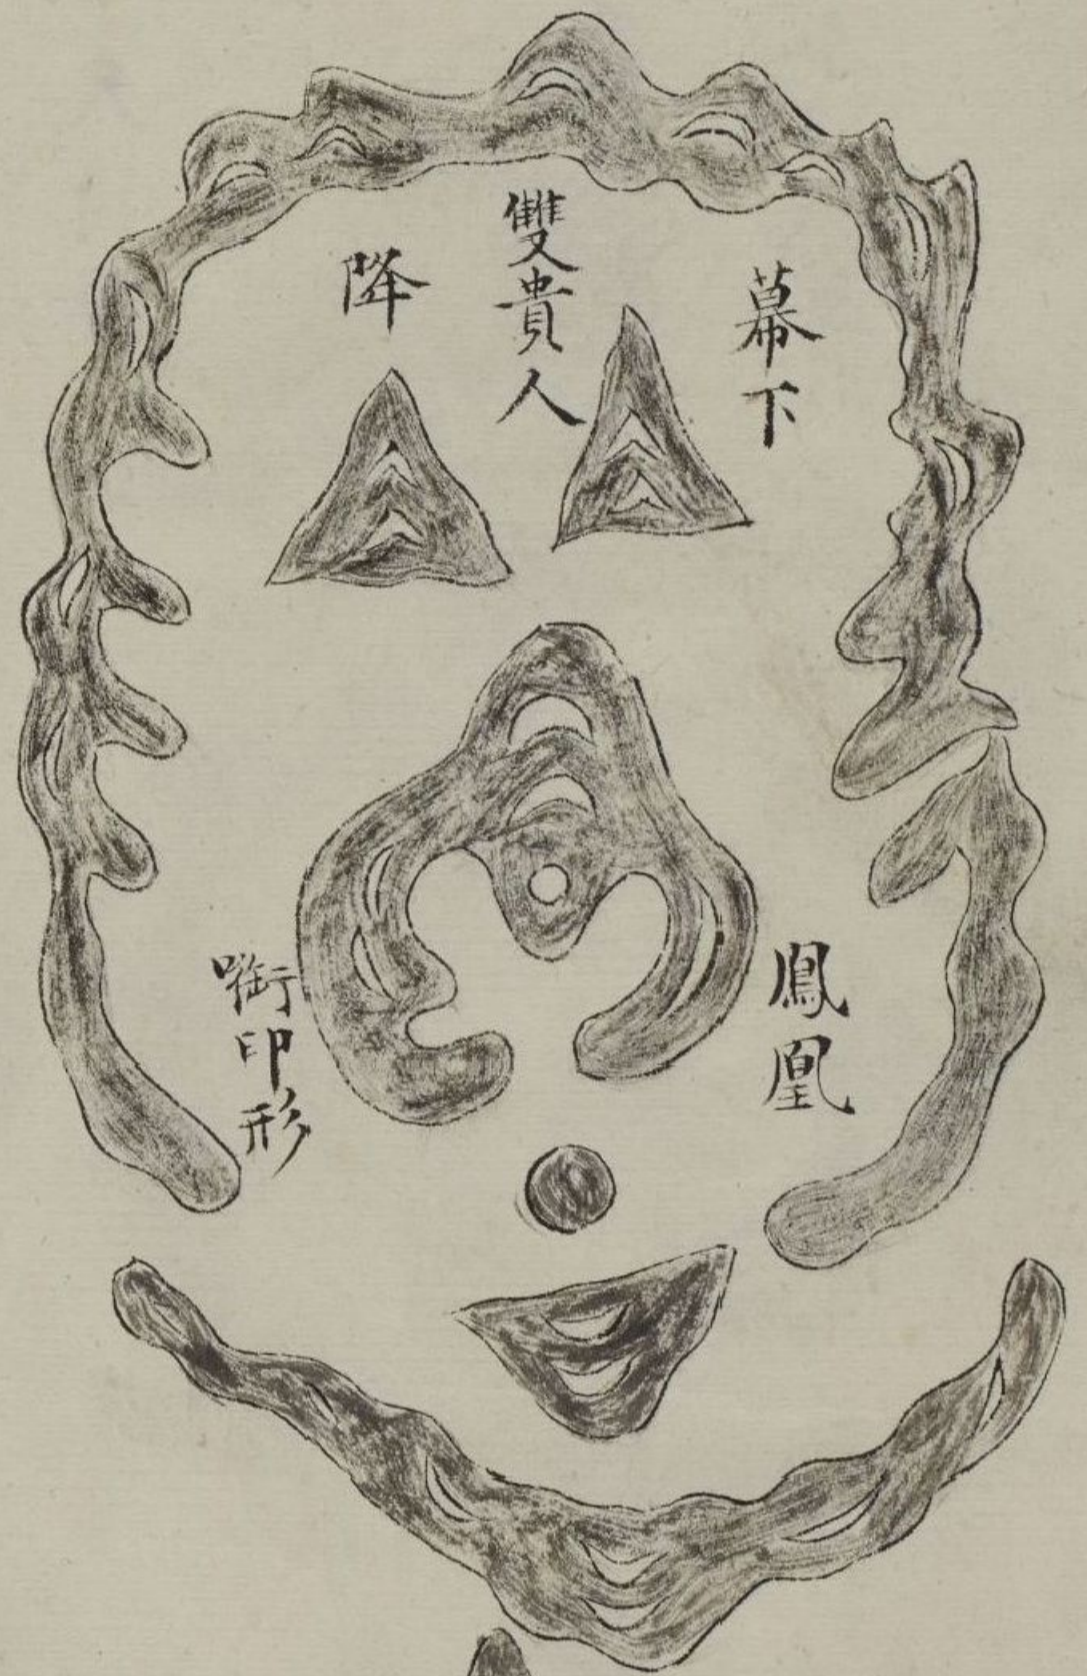 幕下
雙貴人
降
鳳凰
啣印形